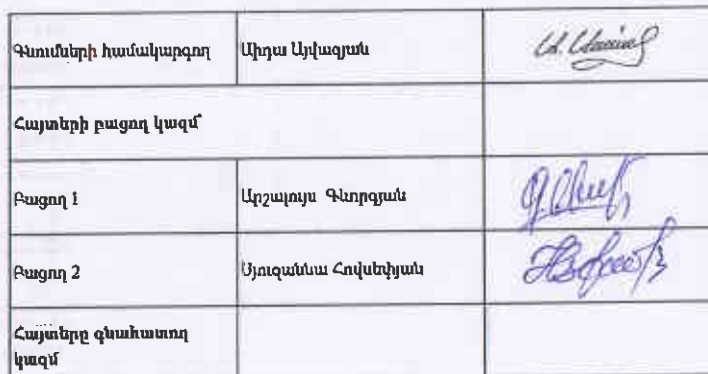 Գնումների համակարգող Աիդա Այվազյան
Հայտերի բացող կազմ՝
Բացող 1 Արշալույս Գևորգյան
Բացող 2 Սյուզաննա Հովսեփյան
Հայտերը գնահատող
կազմ